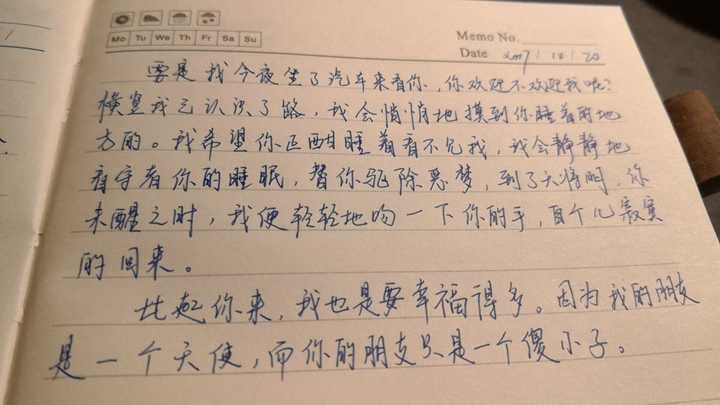 Mo Tu We Th Fr Sa Su
Memo No.
Date 2007/12/20
要是我今夜坐了汽车来看你,你欢迎不欢迎我呢?
横竖我已认识了路,我会悄悄地摸到你睡着的地
方的。我希望你正酣睡着看不见我,我会静静地
看守着你的睡眠,替你驱除恶梦,到了天将明,你
未醒之时,我便轻轻地吻一下你的手,自个儿寂寞
的回来。
比起你来,我也是要幸福得多。因为我的朋友
是一个天使,而你的朋友只是一个傻小子。